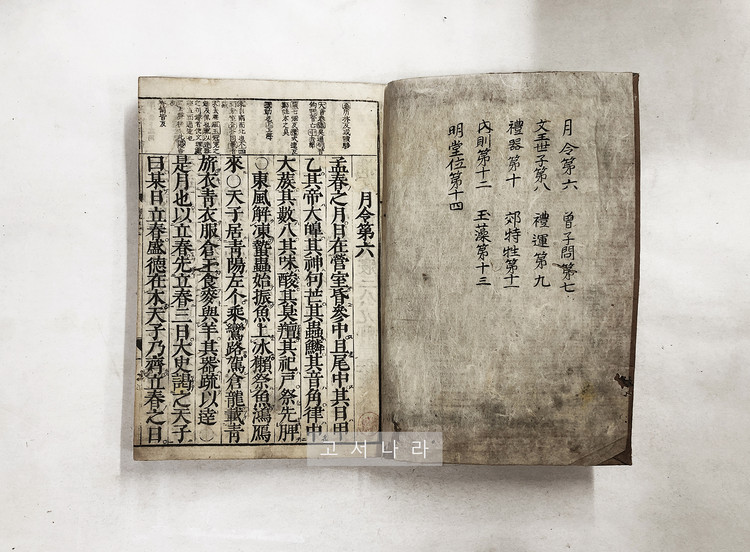 月令第六 曾子問第七
文王世子第八 禮運第九
禮器第十 郊特牲第十一
內則第十二 玉藻第十三
明堂位第十四
月令第六
孟春之月日在營室昏參中旦尾中其日甲
乙其帝大皥其神句芒其蟲鱗其音角律中
大蔟其數八其味酸其臭羶其祀戶祭先脾
○東風解凍蟄蟲始振魚上冰獺祭魚鴻鴈
來○天子居靑陽左个乘鸞路駕倉龍載靑
旂衣靑衣服倉玉食麥與羊其器疏以達○
是月也以立春先立春三日大史謁之天子
曰某日立春盛德在木天子乃齊立春之日
고서나라